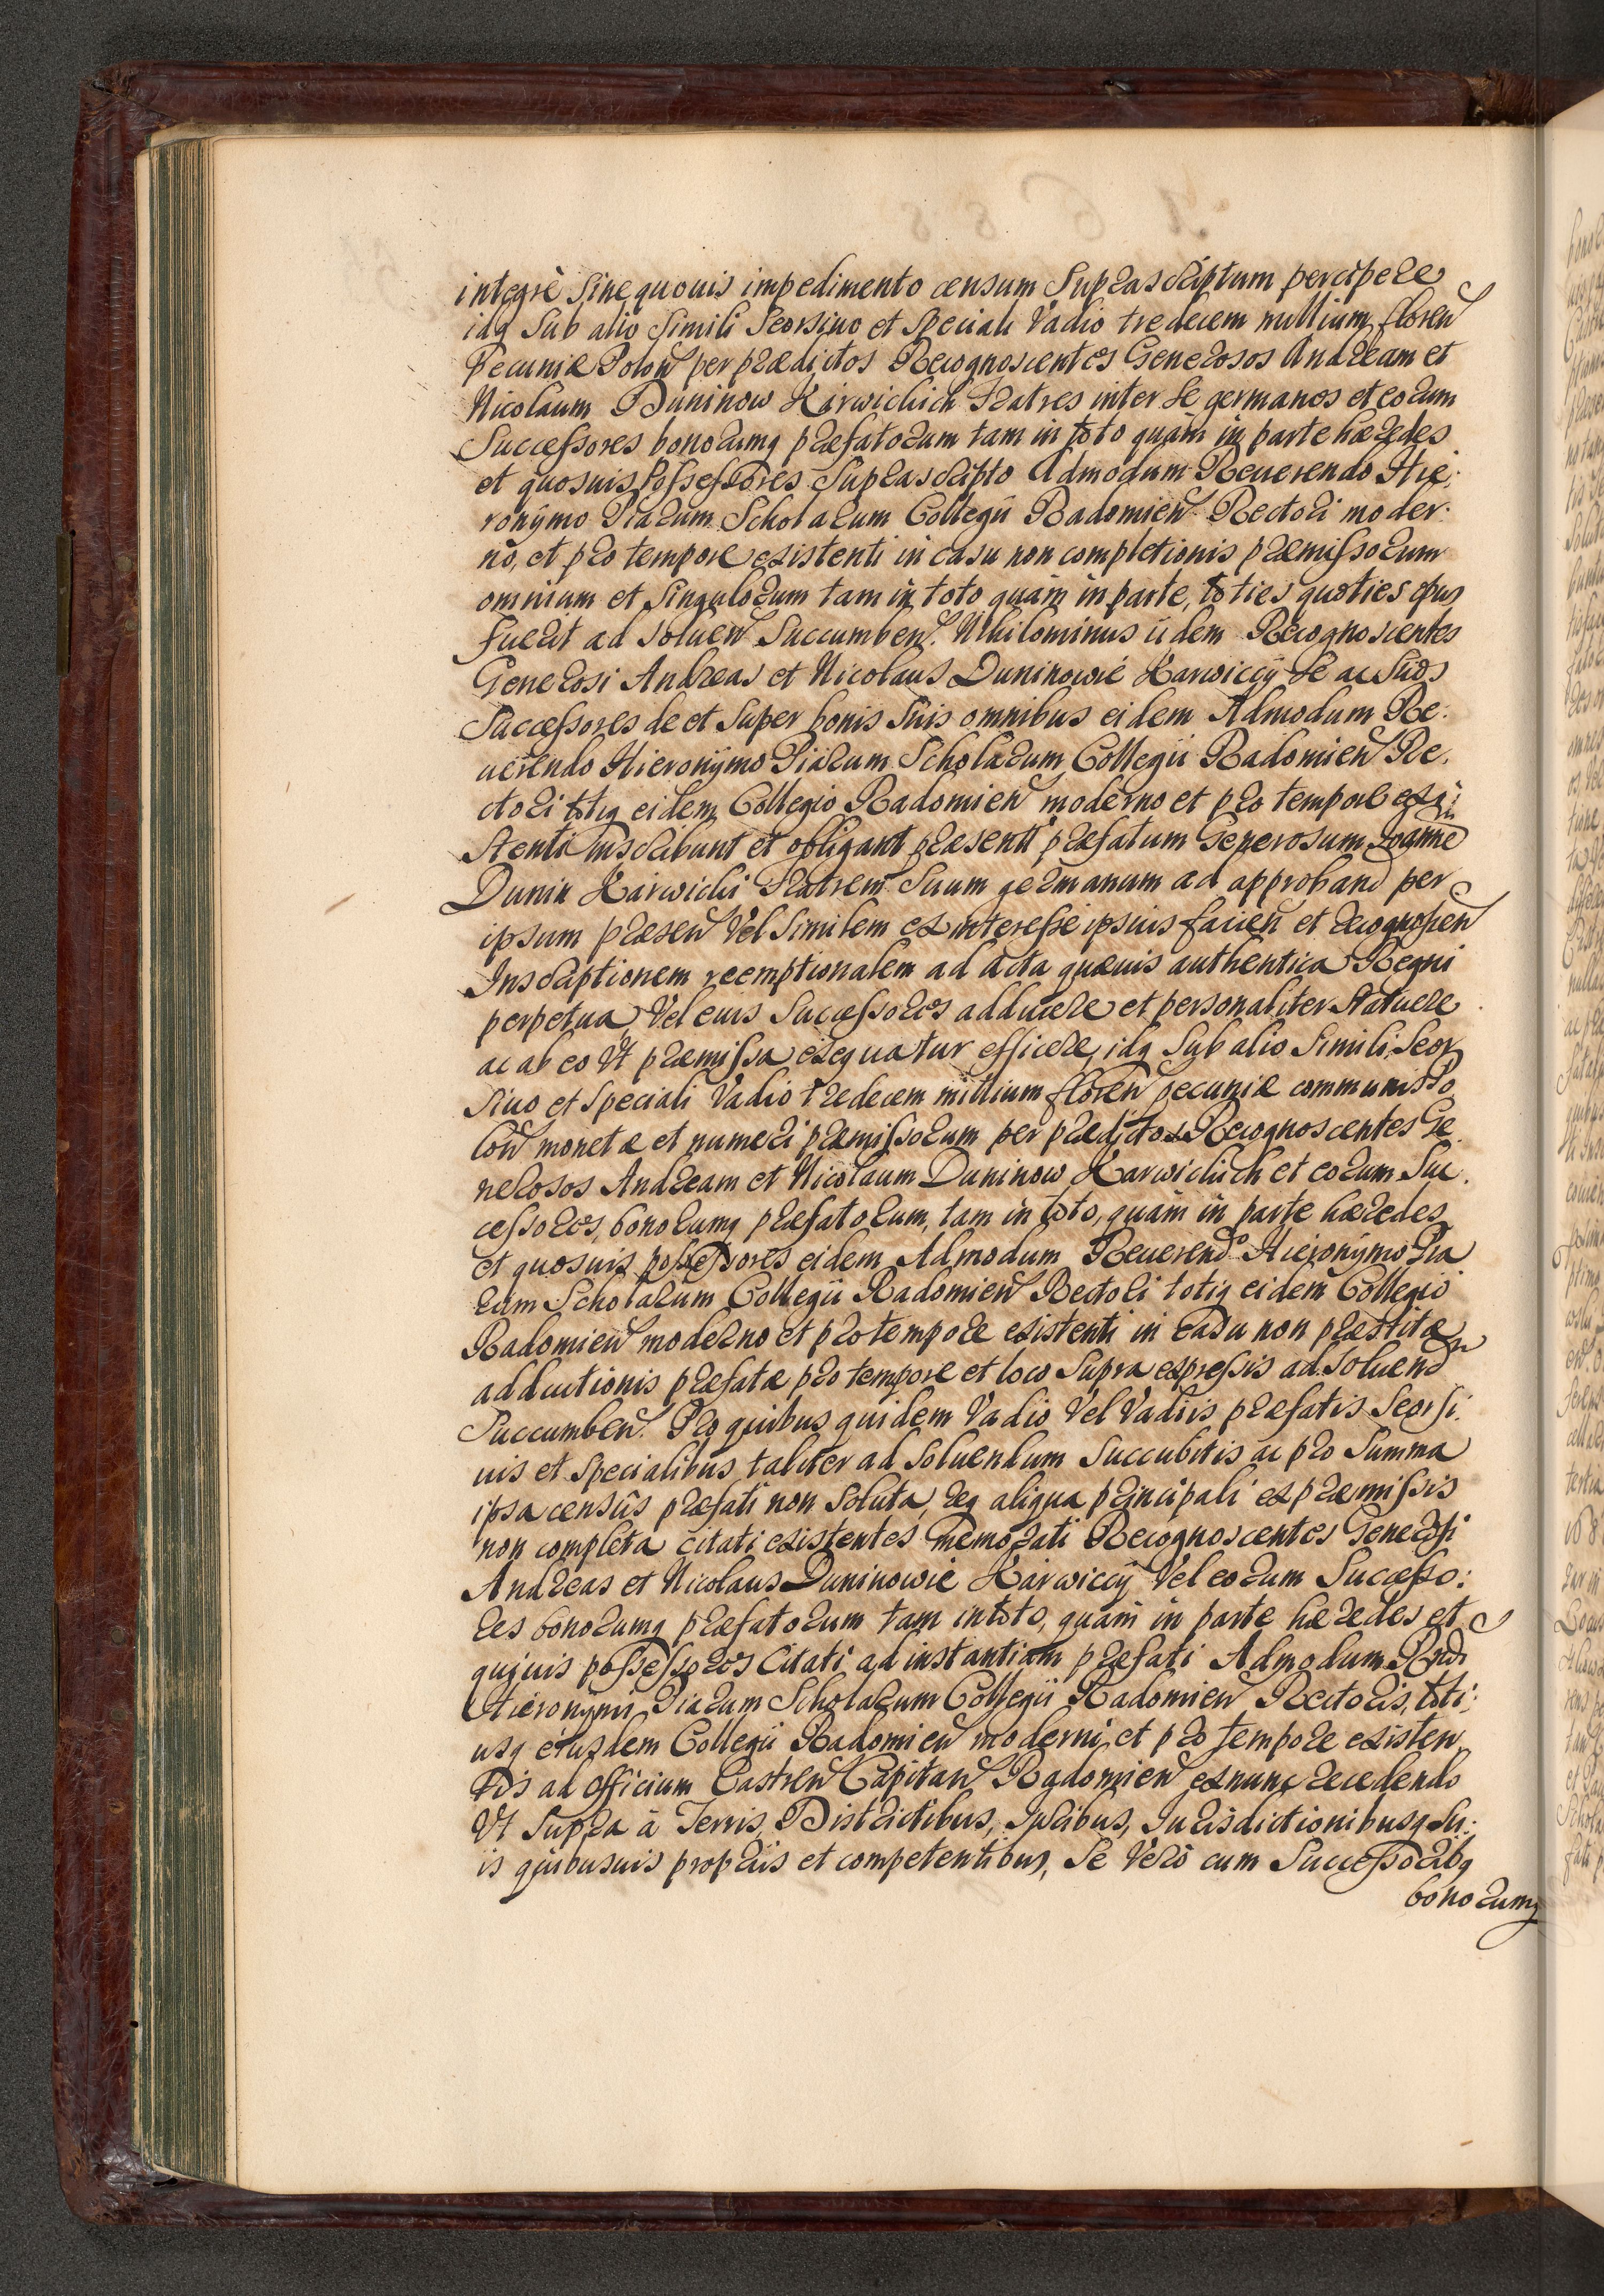 integre sine quouis impedimento censum suprascriptum percipere
idq sub alio simili seorsiuo et speciali vadio tredecem millium floren
Pecuniæ Polon per prædictos Recognoscentes Generosos Andream et
Nicolaum Duninow Karwickich Fratres inter se germanos et eorum
Successores bonorumq præfatorum tam in toto quàm in parte hæredes
et quosuis Possessores suprascripto Admodum Reuerendo Hie:
ronÿmo Piarum Scholarum Collegii Radomien Rectori moder:
no, et pro tempore existenti in casu non completionis præmissorum
omnium et singulorum tam in toto quàm in parte, toties quoties opus
fuerit ad soluen succumben. Nihilominus iidem Recognoscentes
Generosi Andreas et Nicolaus Duninowie Karwiccÿ se ac suos
Successores de et super bonis suis omnibus eidem Admodum Re:
uerendo Hieronÿmo Piarum Scholarum Collegii Radomien Re:
ctori totiq eidem Collegio Radomien moderno et pro tempore exi:
stenti inscribunt et obligant præsenti præfatum Generosum Joanne
Dunin Karwicki Fratrem suum germanum ad approband per
ipsum præsen vel similem ex interesse ipsius facien et recognoscen
Inscriptionem reemptionalem ad Acta quæuis authentica Regni
perpetua, vel eius Successores adducere et personaliter statuere
ac ab eo vt præmissa exequatur efficere, idq sub alio simili seor
siuo et speciali vadio tredecem millium floren pecuniæ communis Po
lon monetæ et numeri præmissorum per prædictos Recognoscentes Ge
nerosos Andream et Nicolaum Duninow Karwickich et eorum Suc:
cessores, bonorumq præfatorum, tam in toto, quàm in parte hæredes
et quosuis possessores eidem Admodum Reuerendo Hieronÿmo Pia
rum Scholarum Collegii Radomien Rectori totiq eidem Collegio
Radomien moderno et pro tempore existenti in casu non præstitæ
adductionis præfatæ pro tempore et loco supra expressis ad soluend
succumben. Pro quibus quidem vadio vel vadiis præfatis seorsi:
uis et specialibus taliter ad soluendum succubitis ac pro summa
ipsa censûs præfati non soluta, req aliqua principali ex præmissis
non completa citati existentes memorati Recognoscentes Generosi
Andreas et Nicolaus Duninowie Karwiccÿ vel eorum Successo:
res bonorumq præfatorum tam in toto, quàm in parte hæredes et
quiuis possessores Citati ad instantiam præfati Admodum Rndi
Hieronymi Piarum Scholarum Collegii Radomien Rectoris, toti:
usq eiusdem Collegii Radomien moderni et pro tempore existen
tis ad officium Castren Capitan Radomien exnunc recedendo
vt supra à Terris, Districtibus, Juribus, Jurisdictionibusq su:
is quibusuis propriis et competentibus, se verò cum Successoribq
bonorumq